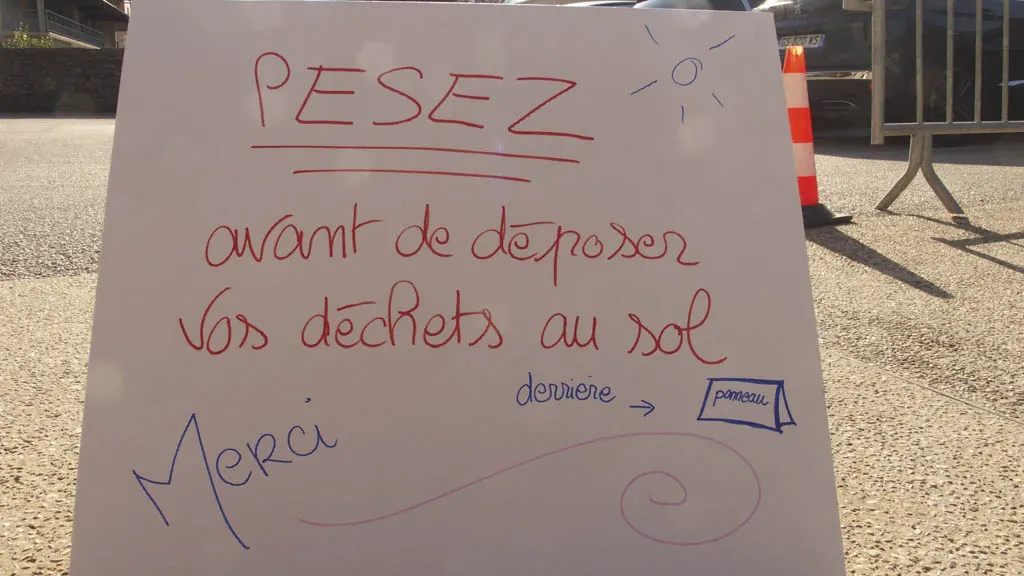 PESEZ
avant de déposer
vos déchets au sol
derrière → panneau
Merci